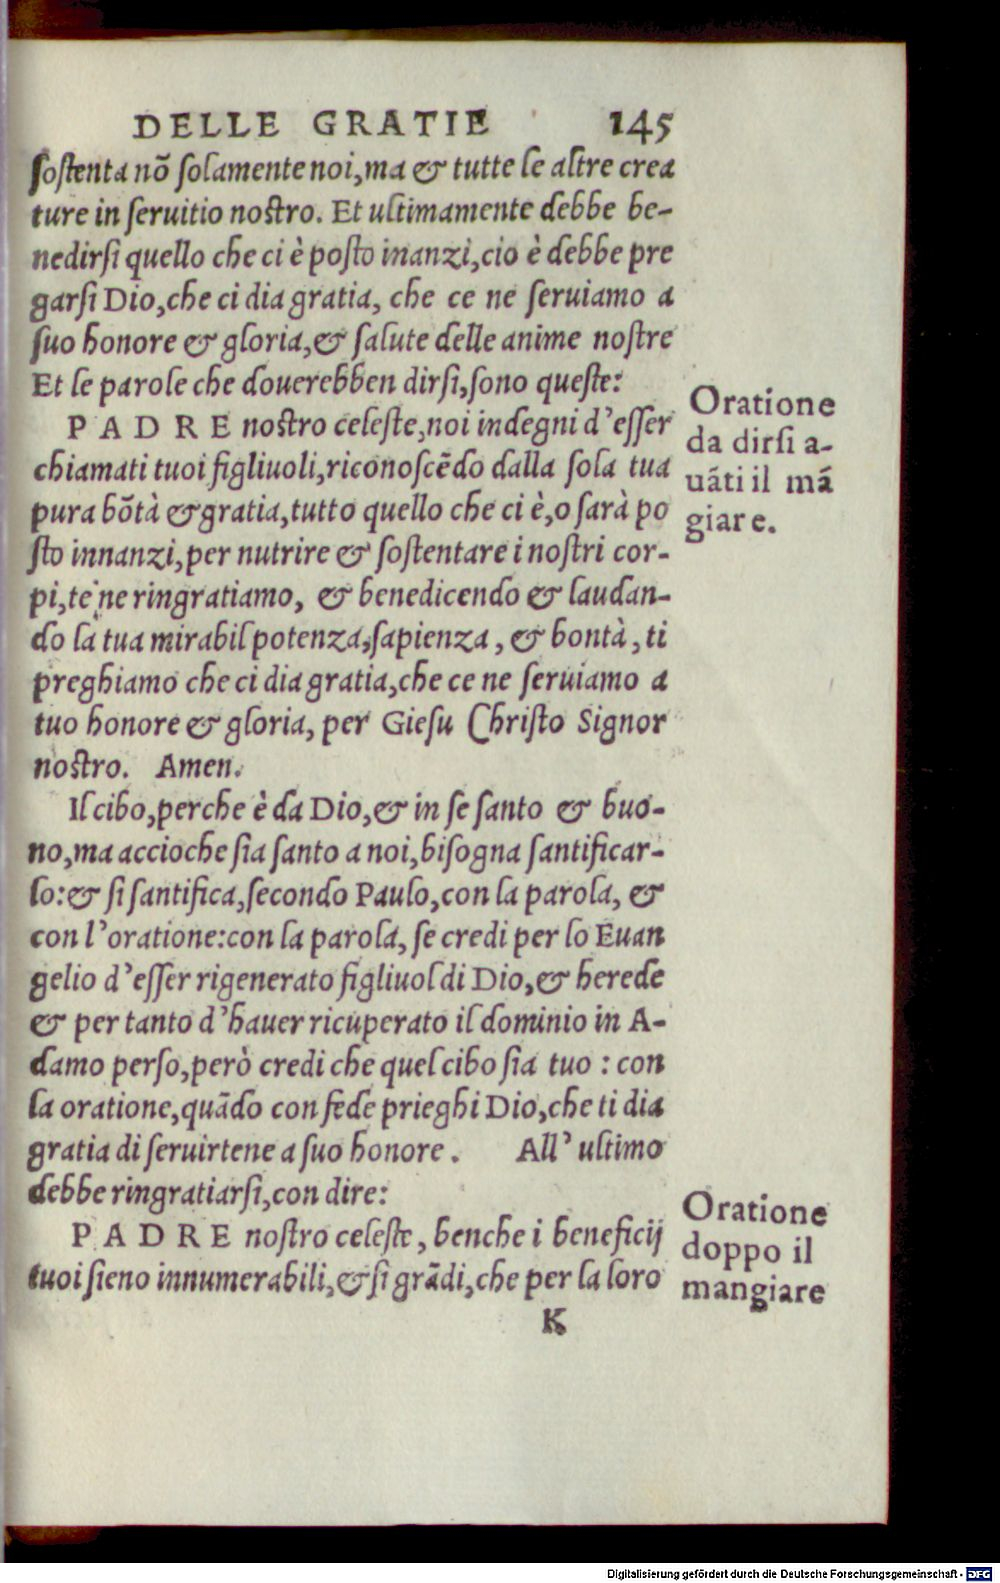 DELLE GRATIE 145
sostenta nõ solamente noi, ma & tutte le altre crea
ture in seruitio nostro. Et ultimamente debbe be-
nedirsi quello che ci è posto inanzi, cio è debbe pre
garsi Dio, che ci dia gratia, che ce ne seruiamo a
suo honore & gloria, & salute delle anime nostre
Et le parole che douerebben dirsi, sono queste:
PADRE nostro celeste, noi indegni d'esser
chiamati tuoi figliuoli, riconoscẽdo dalla sola tua
pura bõtà & gratia, tutto quello che ci è, o sarà po
sto innanzi, per nutrire & sostentare i nostri cor-
pi, te ne ringratiamo, & benedicendo & laudan-
do la tua mirabil potenza, sapienza, & bontà, ti
preghiamo che ci dia gratia, che ce ne seruiamo a
tuo honore & gloria, per Giesu Christo Signor
nostro. Amen.
Oratione
da dirsi a-
uãti il mã
giare.
Il cibo, perche è da Dio, & in se santo & buo-
no, ma accioche sia santo a noi, bisogna santificar-
lo: & si santifica, secondo Paulo, con la parola, &
con l'oratione: con la parola, se credi per lo Euan
gelio d'esser rigenerato figliuol di Dio, & herede
& per tanto d'hauer ricuperato il dominio in A-
damo perso, però credi che quel cibo sia tuo: con
la oratione, quãdo con fede prieghi Dio, che ti dia
gratia di seruirtene a suo honore. All' ultimo
debbe ringratiarsi, con dire:
PADRE nostro celeste, benche i beneficij
tuoi sieno innumerabili, & si grãdi, che per la loro
Oratione
doppo il
mangiare
K
Digitalisierung gefördert durch die Deutsche Forschungsgemeinschaft - DFG